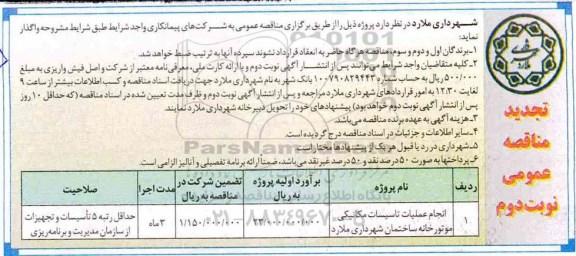 شهرداری ملارد در نظر دارد پروژه ذیل را از طریق برگزاری مناقصه عمومی به شرکت‌های پیمانکاری واجد شرایط طبق شرایط مشروحه واگذار
نماید:
۱- برندگان اول و دوم و سوم، مناقصه هرگاه حاضر به انعقاد قرارداد نشوند سپرده آنها به ترتیب ضبط خواهد شد.
۲- کلیه متقاضیان واجد شرایط می توانند پس از انتشار آگهی نوبت دوم و با ارائه کارت ملی، معرفی نامه معتبر از شرکت و اصل فیش واریزی به مبلغ
۵۰۰/۰۰۰ ریال به حساب شماره ۱۰۰۷۹۰۸۲۹۴۴۳ بانک شهر به نام شهرداری ملارد جهت دریافت اسناد مناقصه و کسب اطلاعات بیشتر از ساعت ۹
لغایت ۱۲:۳۰ به امور قراردادهای شهرداری ملارد مراجعه و پس از انتشار آگهی نوبت دوم و ظرف مدت تعیین شده در اسناد مناقصه (که حداقل ۱۰ روز
پس از انتشار آگهی نوبت دوم خواهد بود) پیشنهادهای خود را تحویل دبیرخانه شهرداری ملارد نمایند.
۳- هزینه آگهی به عهده برنده مناقصه می‌باشد.
۴- سایر اطلاعات و جزئیات در اسناد مناقصه درج گردیده است.
۵- شهرداری در رد یا قبول هر یک از پیشنهادها مختار است.
۶- پرداختها به صورت ۵۰ درصد نقد و ۵۰ درصد غیر نقد می‌باشد، ضمنا ارائه برنامه تفصیلی و آنالیز الزامی است.
ملارد
تجدید
مناقصه
عمومی
نوبت دوم
ردیف نام پروژه برآورد اولیه پروژه به ریال تضمین شرکت در مناقصه به ریال مدت اجرا صلاحیت
۱ انجام عملیات تاسیسات مکانیکی موتورخانه ساختمان شهرداری ملارد ۲۳/۰۰۰/۰۰۰/۰۰۰ ۱/۱۵۰/۰۰۰/۰۰۰ ۳ماه حداقل رتبه ۵ تأسیسات و تجهیزات از سازمان مدیریت و برنامه‌ریزی
ParsNamadData